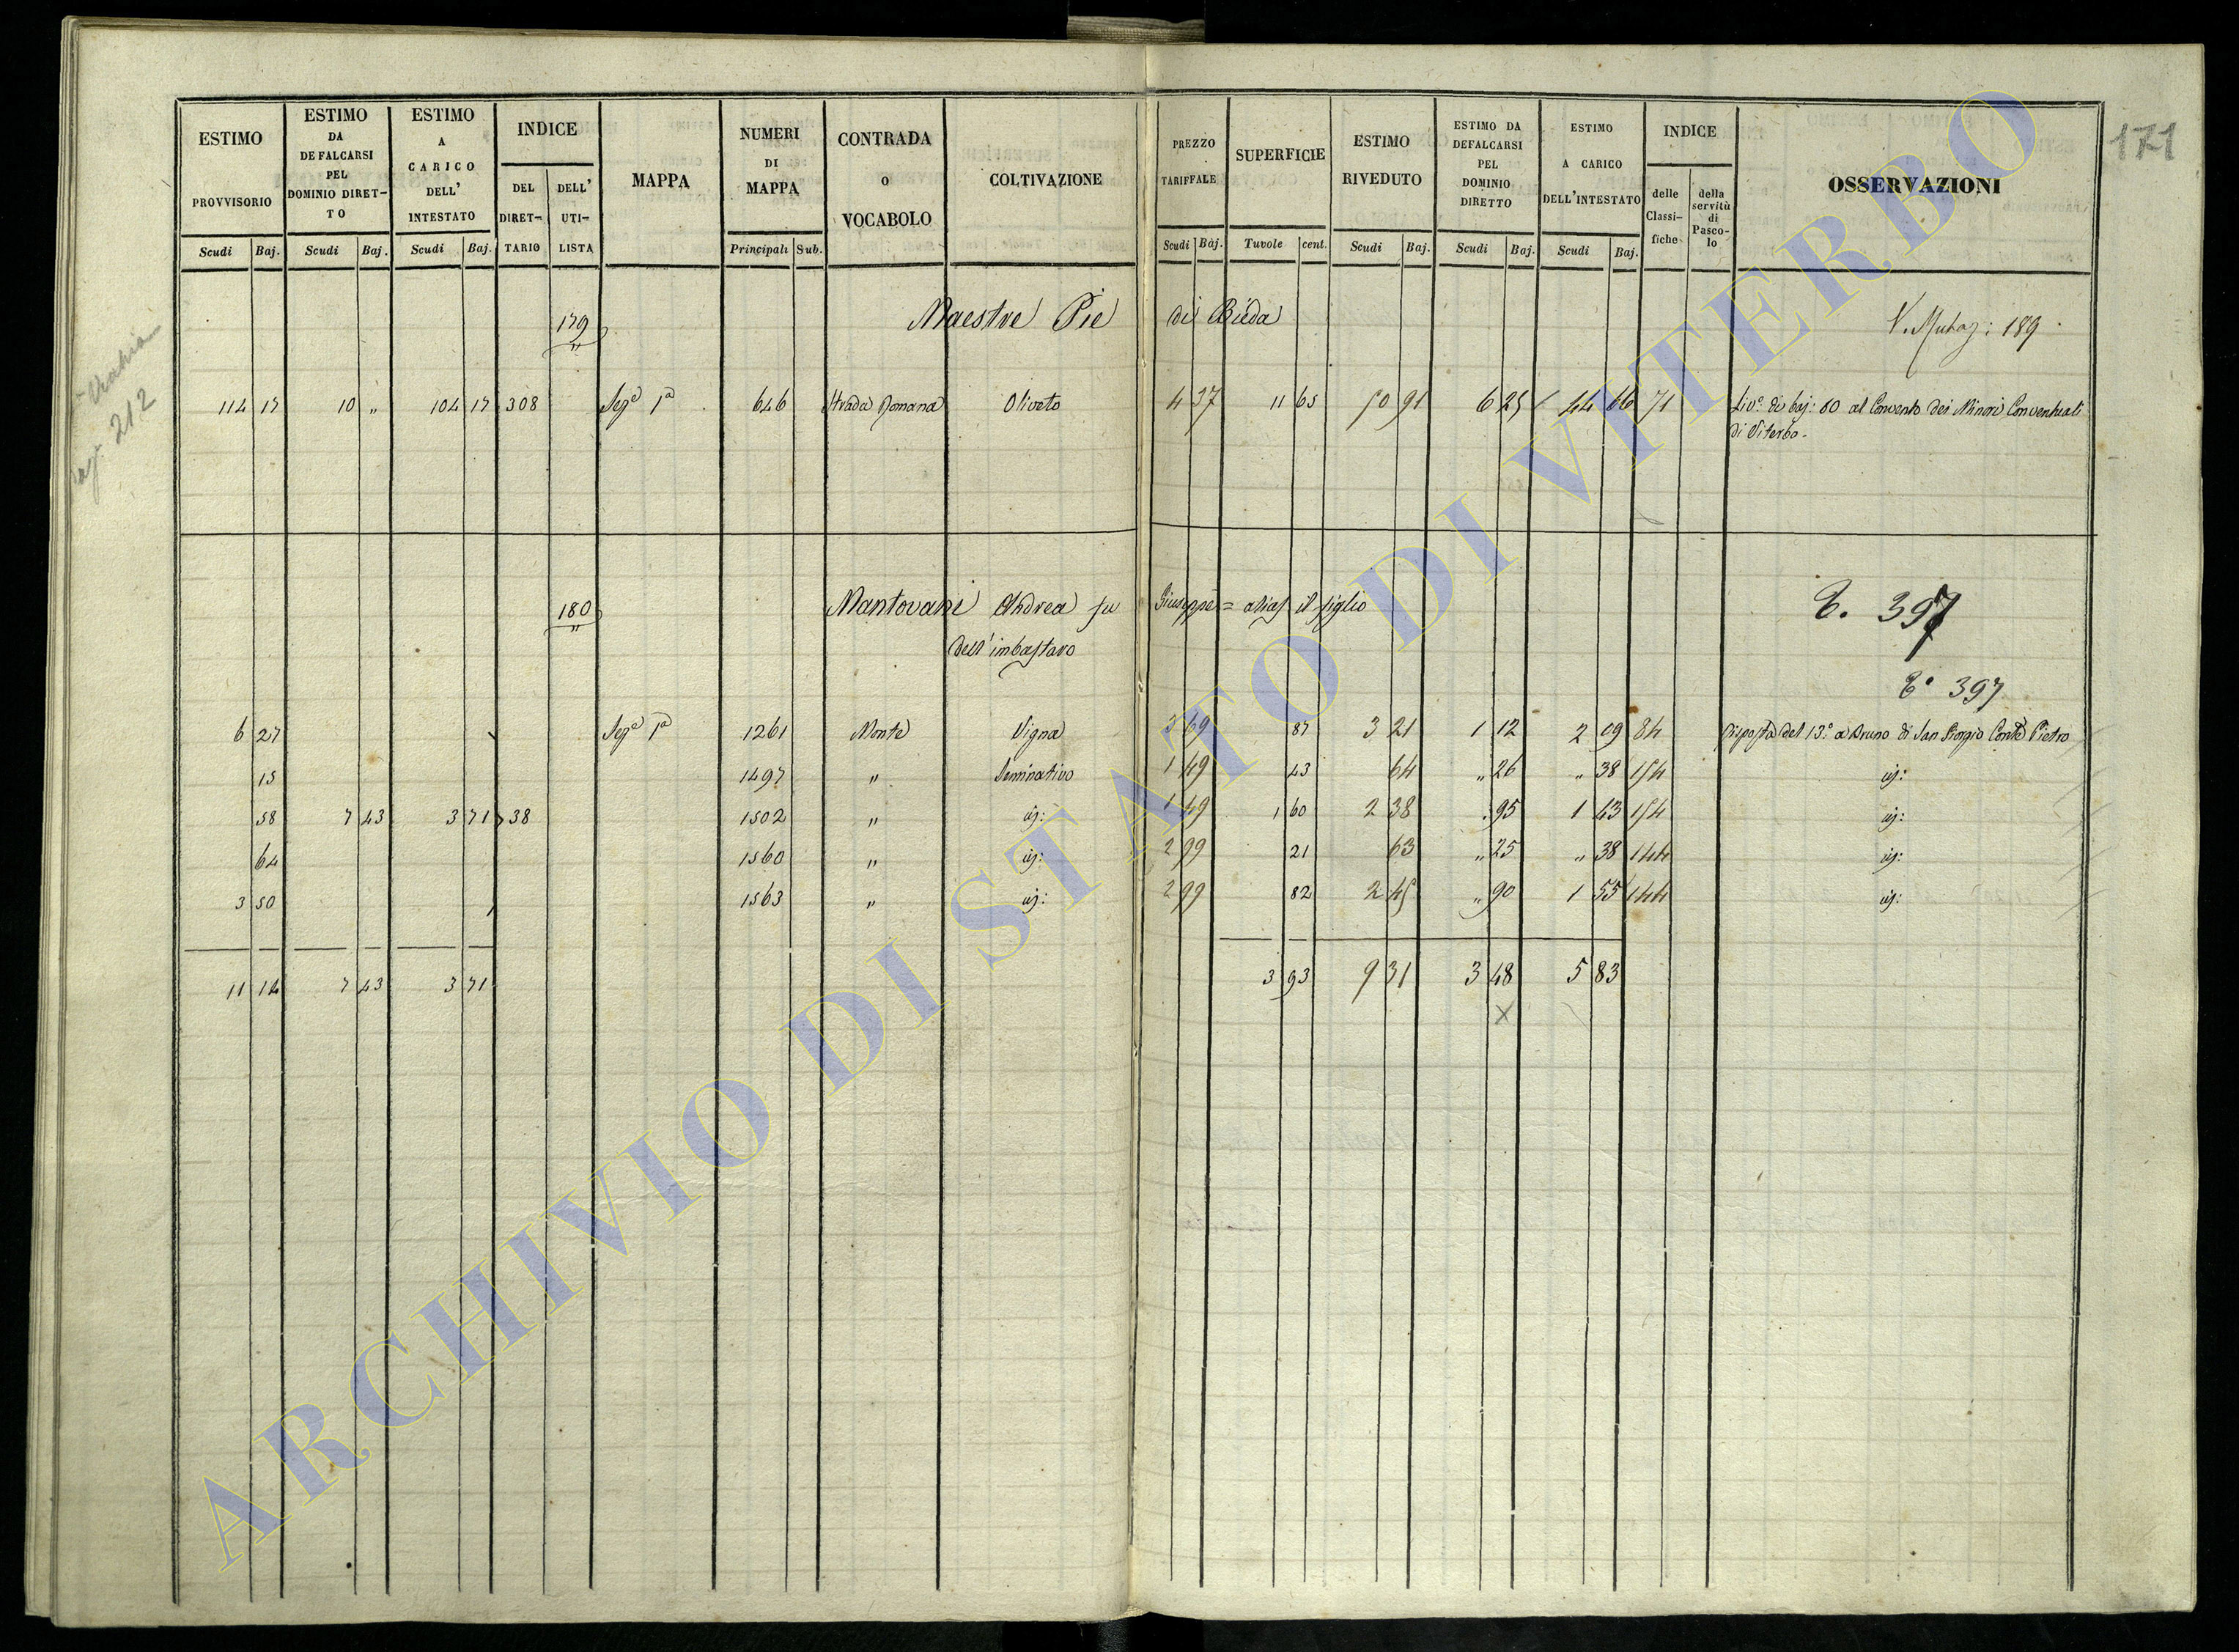 171
ESTIMO PROVVISORIO Scudi Baj.
ESTIMO DA DEFALCARSI PEL DOMINIO DIRET-TO Scudi Baj.
ESTIMO A CARICO DELL' INTESTATO Scudi Baj.
INDICE DEL DIRET-TARIO DELL' UTI-LISTA
MAPPA
NUMERI DI MAPPA Principali Sub.
CONTRADA O VOCABOLO
COLTIVAZIONE
PREZZO TARIFFALE Scudi Baj.
SUPERFICIE Tavole cent.
ESTIMO RIVEDUTO Scudi Baj.
ESTIMO DA DEFALCARSI PEL DOMINIO DIRETTO Scudi Baj.
ESTIMO A CARICO DELL'INTESTATO Scudi Baj.
INDICE delle Classi-fiche della servitù di Pasco-lo
OSSERVAZIONI
179 Maestre Pie di Bieda 189
114 17 10 " 104 17 308 Sez.e 1a 646 Strada Romana Oliveto 4 37 11 65 50 91 6 25 44 66 71 Liv.o di baj: 50 al Convento dei Minori Conventuali
di Viterbo.
212
180 Mantovani Andrea fu Giuseppe = alias il figlio E. 397
dell'imbastaro
E. 397
6 27 Sez.e 1a 1261 Monte Vigna 3 69 87 3 21 1 12 2 09 84 Risposta del 13.o a Bruno di San Giorgio Conte Pietro
15 1497 " Seminativo 1 49 43 64 " 26 " 38 154 id:
58 7 43 3 71 38 1502 " id: 1 49 1 60 2 38 " 95 1 43 154 id:
64 1560 " id: 2 99 21 63 " 25 " 38 144 id:
3 50 1563 " id: 2 99 82 2 45 " 90 1 55 144 id:
11 14 7 43 3 71 3 93 9 31 3 48 5 83
X
ARCHIVIO DI STATO DI VITERBO